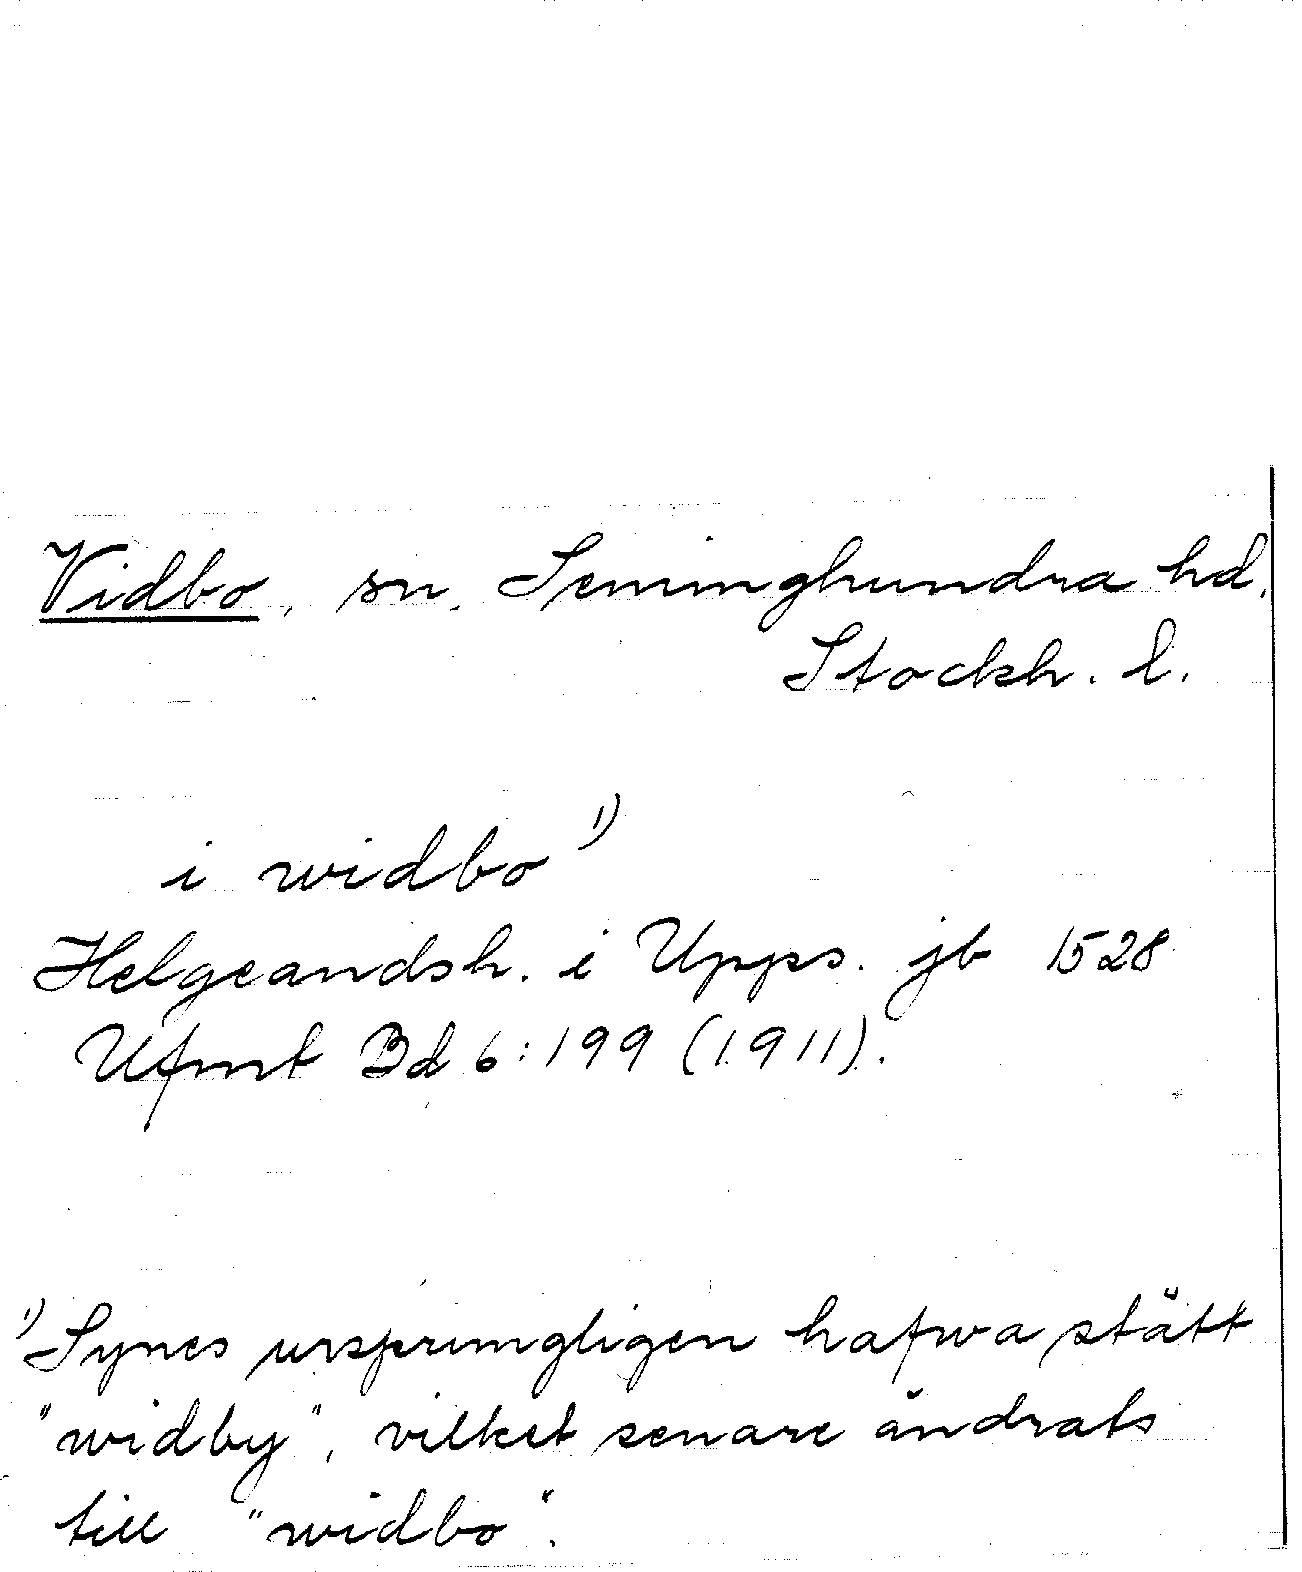 Vidbo, sn, Seminghundra hd.
Stockh. l.
i widbo 1)
Helgeandsh. i Upps. jb 1528
Ufmt Bd 6:199 (1911).
1) Synes ursprungligen hafwa stått
"widby", vilket senare ändrats
till "widbo".